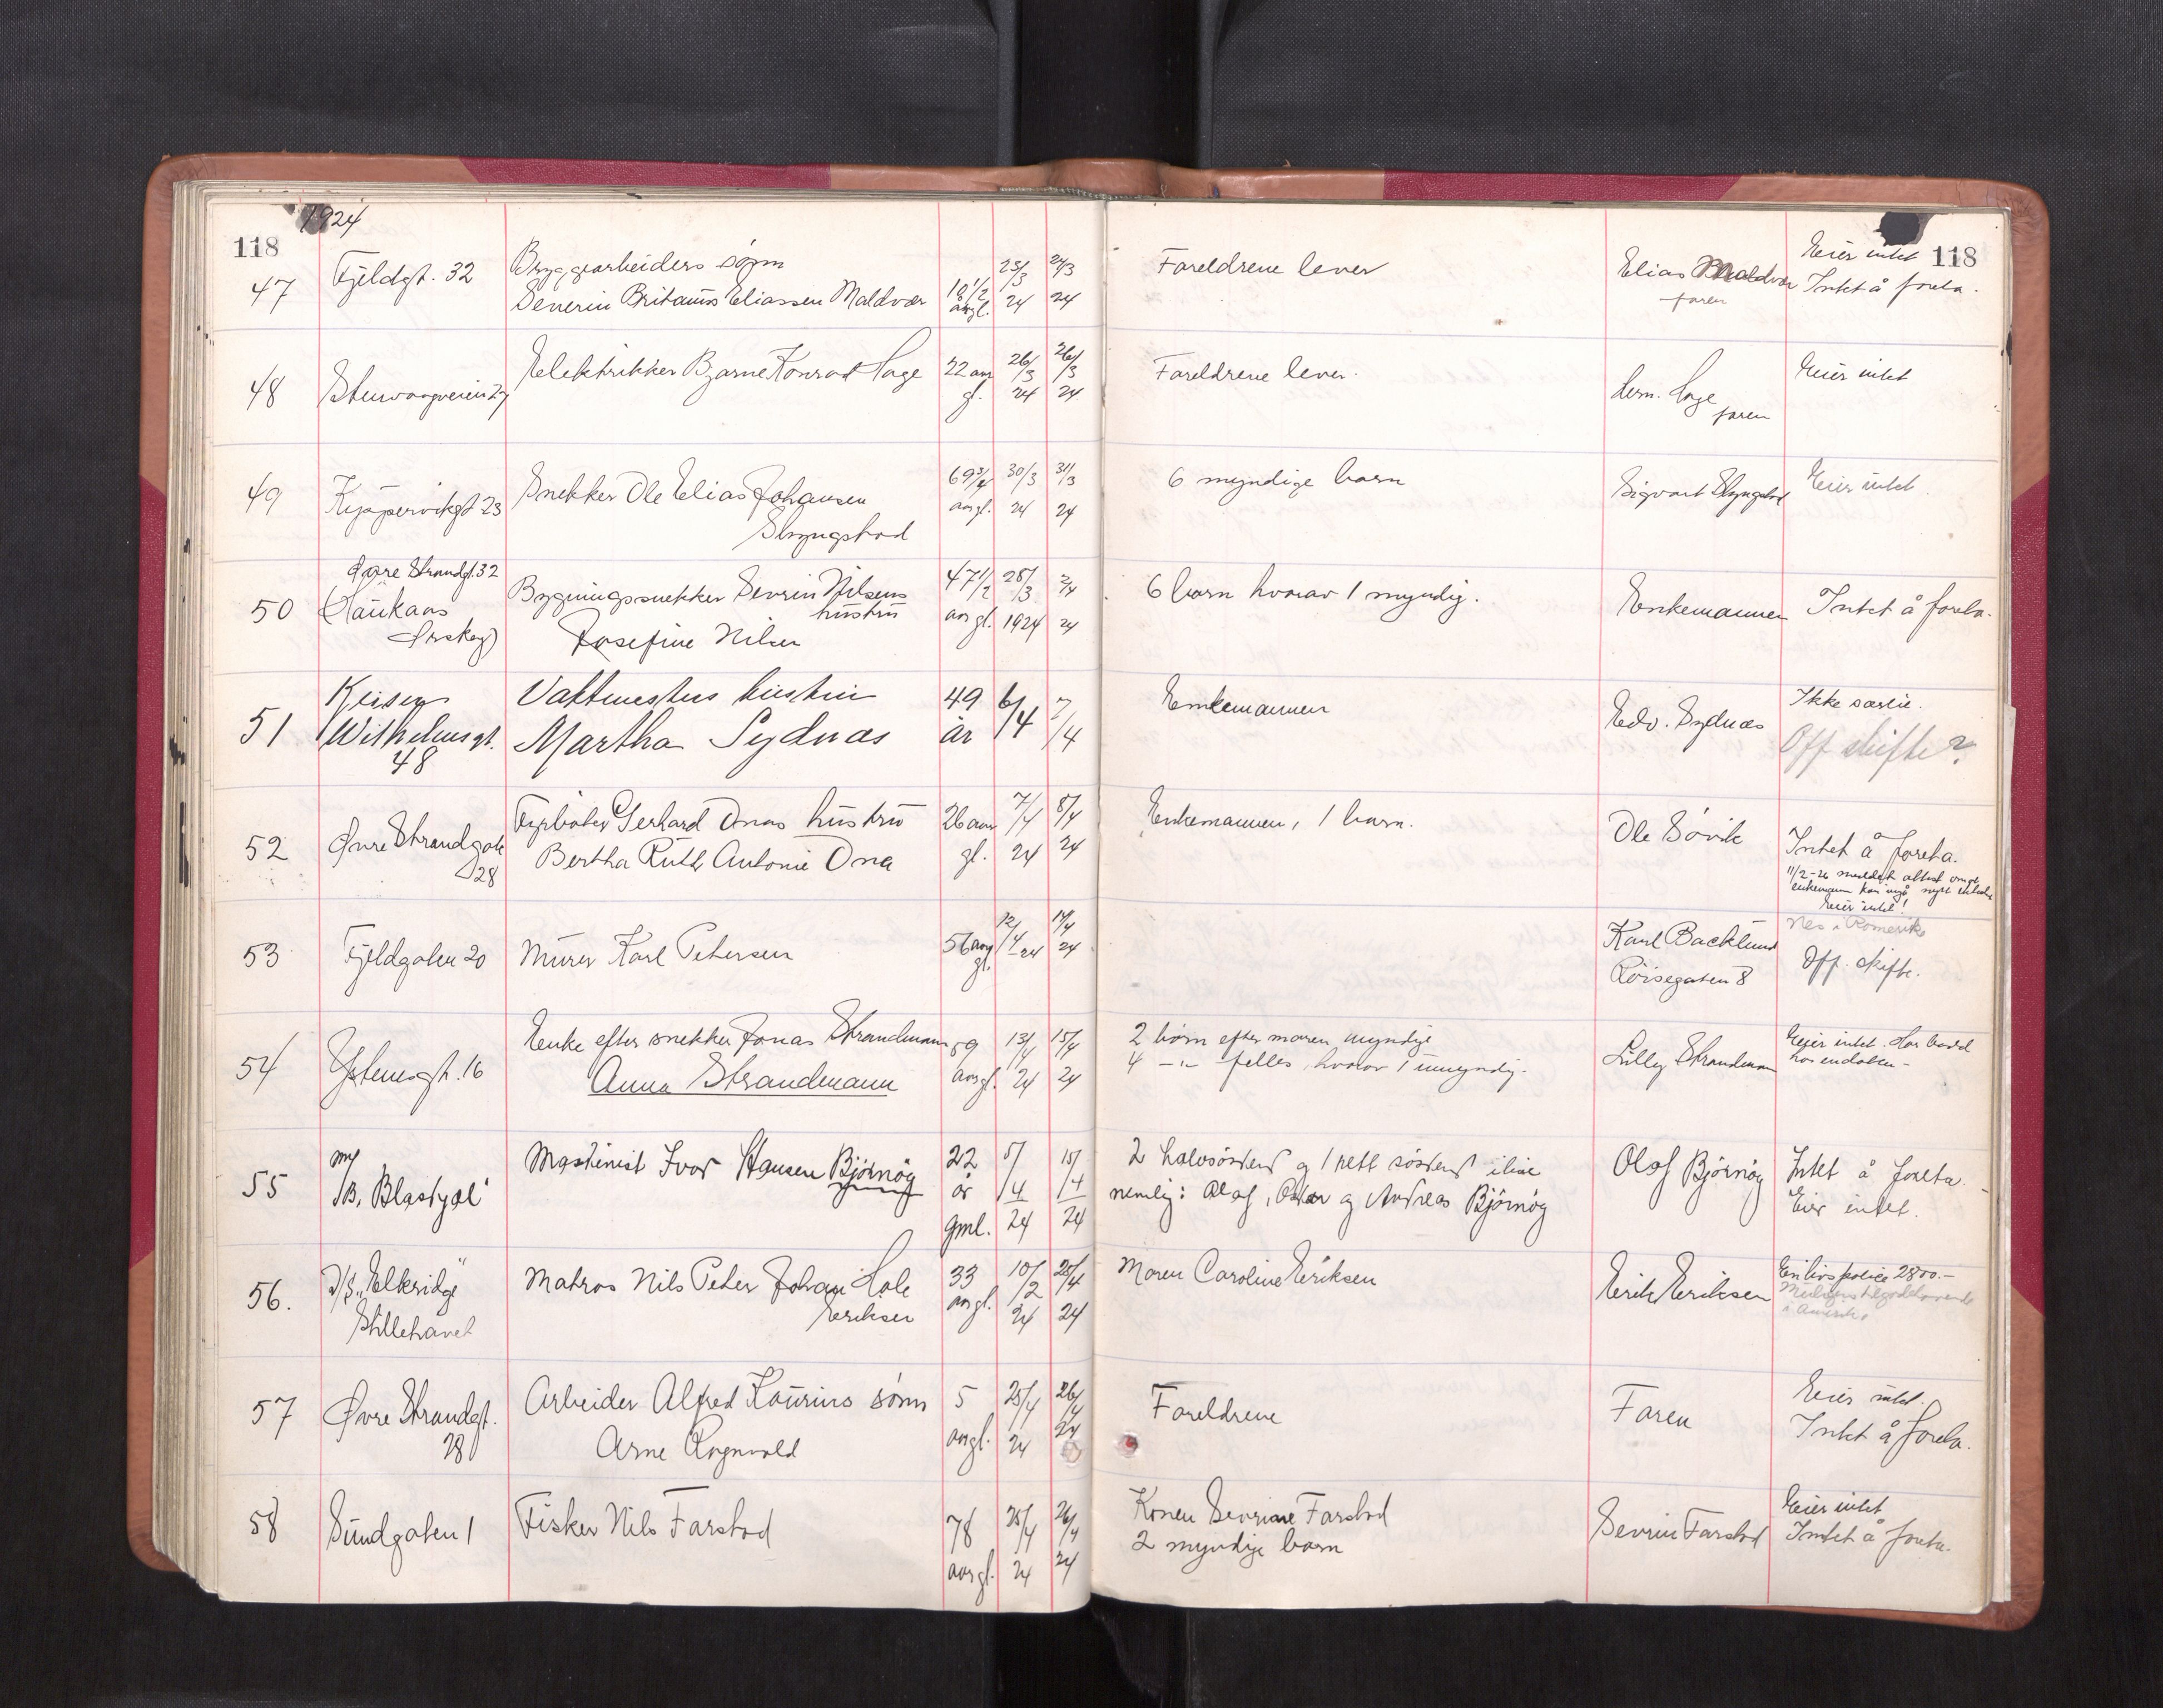 1924
118
118
47 Fjeldgt. 32 Bryggearbeiders sønn
Severin Eliassen Maldvær 10 1/2 aar gl. 25/3 24 27/3 24
Foreldrene lever Elias Maldvær
faren
Eier intet
Intet å foreta.
48 Elektrikker Bjarne Konrad Hage 22 aar gl. 26/3 24 26/3 24
Foreldrene lever. Herm. Hage
faren
Eier intet
49 Kjøpervikgt 23 Snekker Ole Elias Johansen
Slyngstad 69 3/4 aar gl. 30/3 24 31/3 24
6 myndige barn Sigvart Slyngstad Eier intet
50 Øvre Strandgt. 32
Haukaas
Ørskog
Bygningssnekker Sevrin Nilsens
hustru
Josefine Nilsen 47 1/2 aar gl. 28/3 1924 2/4 24
6 barn hvorav 1 myndig. Enkemannen Intet å foreta.
51 Keiser
Wilhelmsgt.
48
Vaktmesters hustru
Martha Sydnæs 49 år 6/4 7/4
Enkemannen Edv. Sydnæs Ikke særeie.
Off skifte?
52 Øvre Strandgate
28
Fyrbøter Gerhard Onas hustru
Bertha Ruth Antonie Ona 26 aar gl. 7/4 24 8/4 24
Enkemannen, 1 barn. Ole Søvik Intet å foreta.
11/2-26 meddelt attest om at
enkemann kan inngå nytt ekteskap
Eier intet!
53 Fjeldgaten 20 Murer Karl Petersen 56 aar gl. 12/4-24 14/4 24
Karl Backlund
Röisegaten 8
Nes i Romerike
Off. skifte.
54 Ystenesgt. 16 Enke efter snekker Jonas Strandmann
Anna Strandmann 59 aar gl. 13/4 24 15/4 24
2 børn efter moren myndige
4 -"- felles, hvorav 1 umyndig.
Lilly Strandmann Eier intet. Har bodd
hos en datter -
55 M/B, Blastgæl" Maskinist Ivar Hansen Björnöy 22 år gml. 5/4 24 15/4 24
2 halvsösken og 1 rett sösken i live
nemlig: Olaf, Oskar og Andreas Björnöy
Olaf Björnöy Intet å foreta.
Eier intet.
56. D/S "Elkridge"
Stillehavet
Matros Nils Peter Johan Hole
Eriksen 33 aar gl. 10/2 24 25/4 24
Moren Caroline Eriksen Erik Eriksen En livspolice 2800.-
tilgodehavende
i Amerika
57 Øvre Strandgt.
28
Arbeider Alfred Kaurins sønn
Arne Ragnvald 5 aar gl. 25/4 24 26/4 24
Foreldrene Faren Eier intet.
Intet å foreta.
58 Sundgaten 1 Fisker Nils Farstad 78 aar gl. 25/4 24 26/4 24
Konen Sevrine Farstad
2 myndige barn
Sevrin Farstad Eier intet
Intet å foreta.